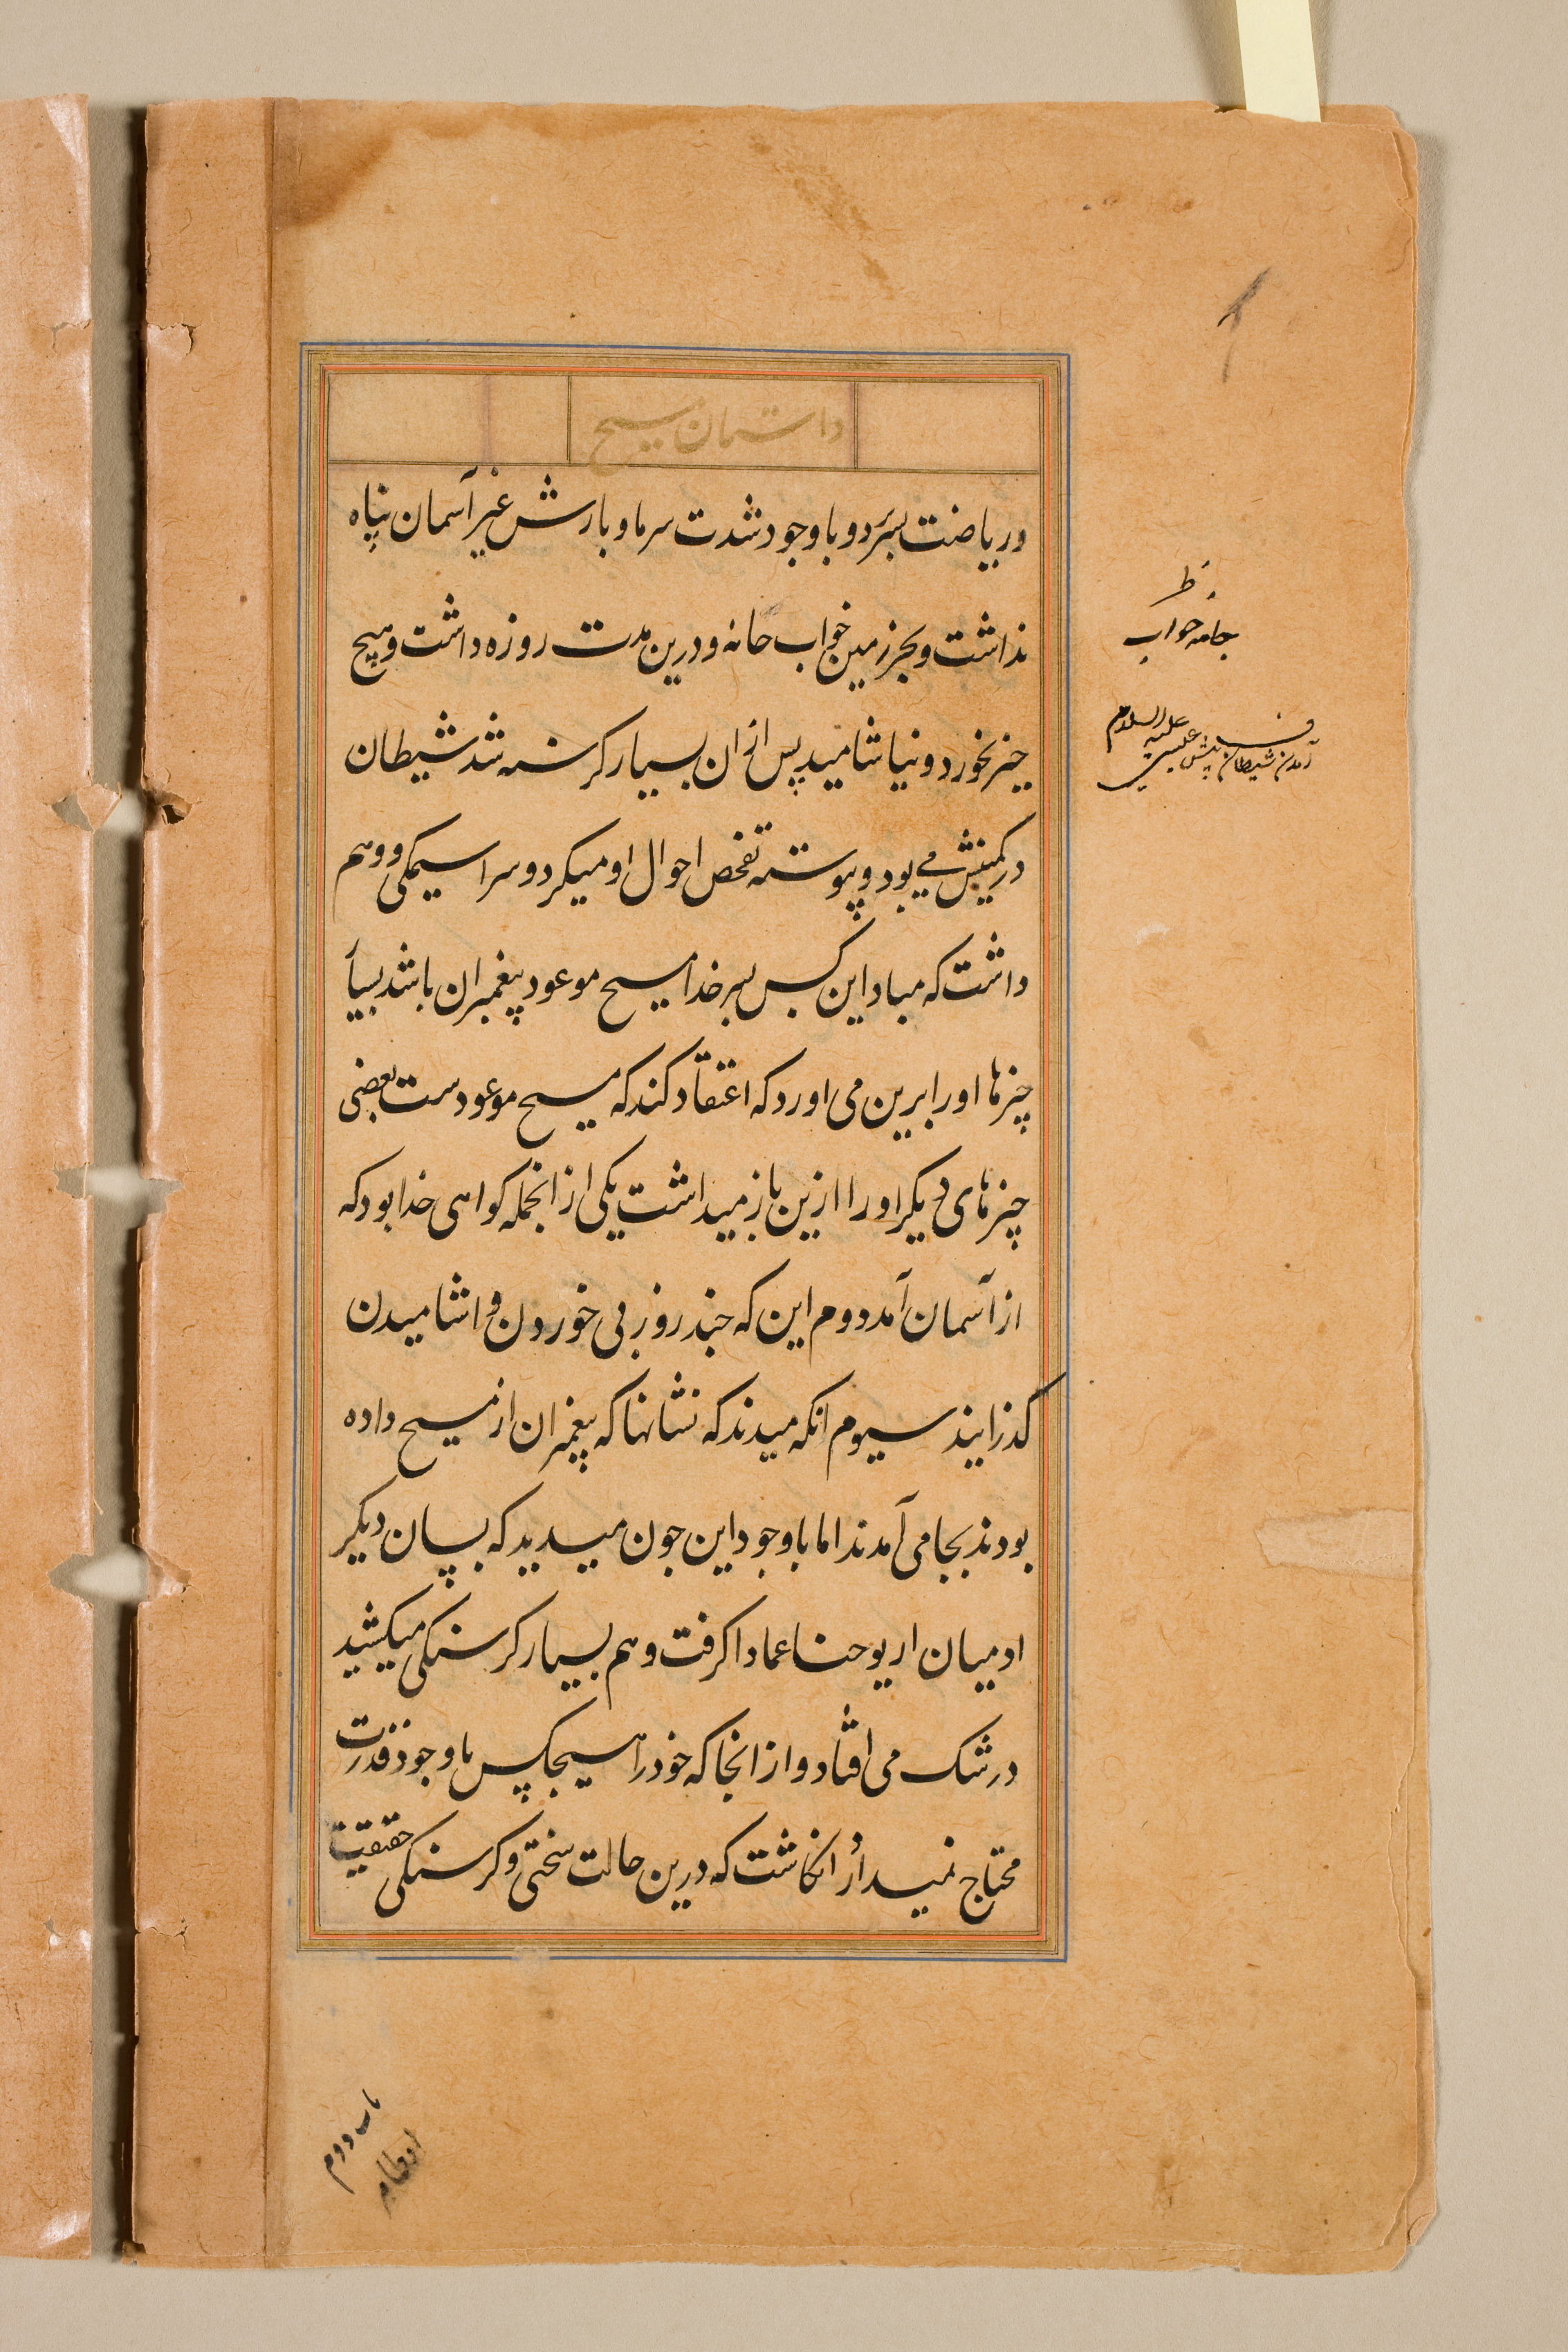 داستان مسیح
وریاضت بسَر برد و باوجود شدت سرما و بارش غیر آسمان پناه
نداشت و بجز زمین خواب خانه و درین مدت روزه داشت و هیچ
چیز نخورد و نیاشامید پس ازان بسیار کرسنه شد شیطان
در کمینش می بود و پیوسته تفحص احوال او میکرد و سراسیمکی و وهم
داشت که مباد این کس پسر خدا مسیح موعود پیغمبران باشد بسیا
چیزها او را برین می اورد که اعتقاد کند که مسیح موعودست بعضی
چیزهای دیکر او را ازین باز میداشت یکی از انجمله کواهی خدا بود که
از آسمان آمد دوم این که چند روز بی خوردن و اشامیدن
کذرانید سیوم انکه میدند که نشانها که پیغمبران از مسیح داده
بودند بجا می آمدند اما باوجود این چون میدید که بسان دیکر
ادمیان از یوحنا عماد اکرفت و هم بسیار کرسنکی میکشید
در شک می افتاد و از انجا که خود را هیچکس باوجود قدرت
محتاج نمیدارد انکاشت که درین حالت سختی و کرسنکی حقیقت
ظ
جامه خواب
آمدن شیطان پیش عیسی علیه السلام
باب دوم